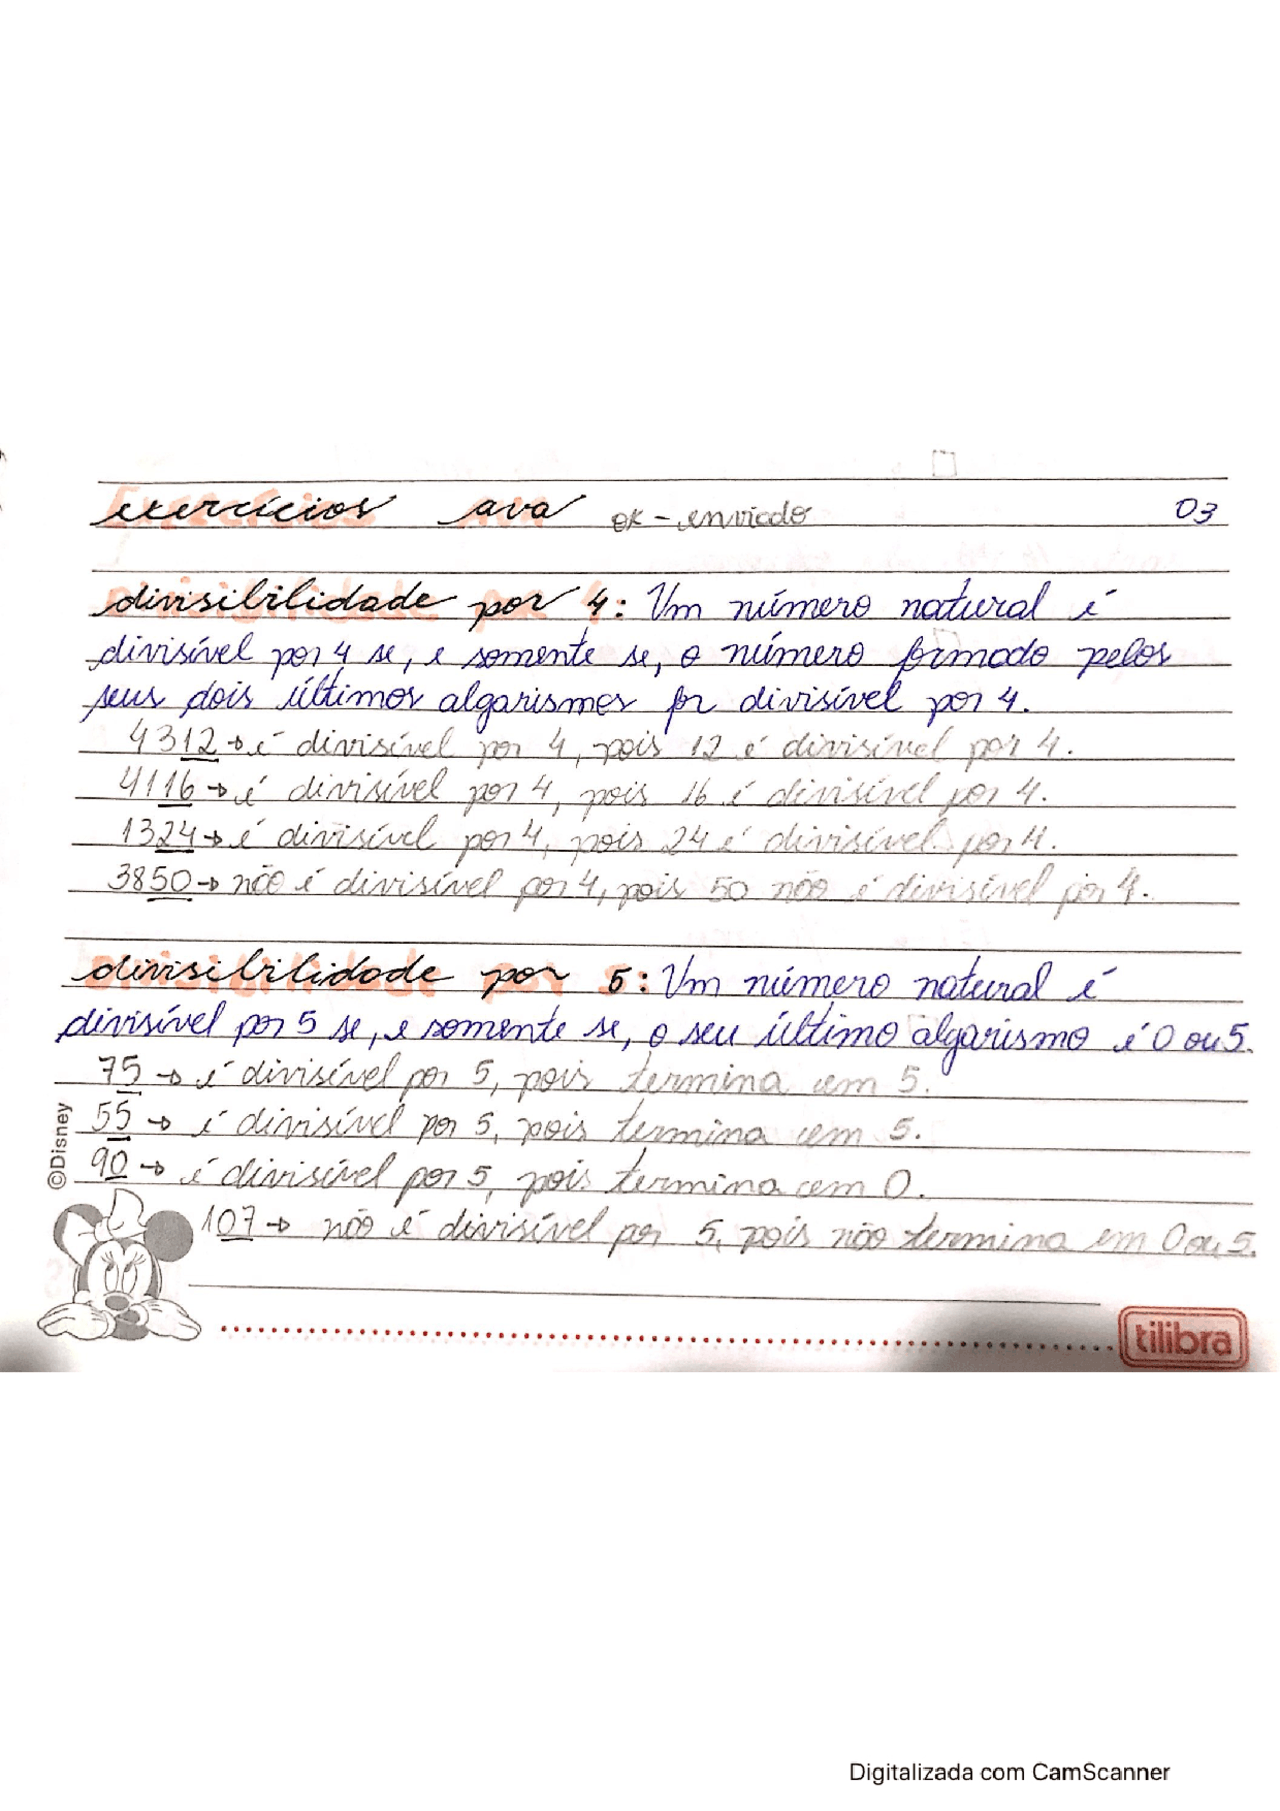 exercícios ava ok - enviado 03
divisibilidade por 4: Um número natural é
divisível por 4 se, e somente se, o número formado pelos
seus dois últimos algarismos for divisível por 4.
4312 → é divisível por 4, pois 12 é divisível por 4.
4116 → é divisível por 4, pois 16 é divisível por 4.
1324 → é divisível por 4, pois 24 é divisível por 4.
3850 → não é divisível por 4, pois 50 não é divisível por 4.
divisibilidade por 5: Um número natural é
divisível por 5 se, e somente se, o seu último algarismo é 0 ou 5.
75 → é divisível por 5, pois termina em 5.
55 → é divisível por 5, pois termina em 5.
90 → é divisível por 5, pois termina em 0.
107 → não é divisível por 5, pois não termina em 0 ou 5.
©Disney
tilibra
Digitalizada com CamScanner